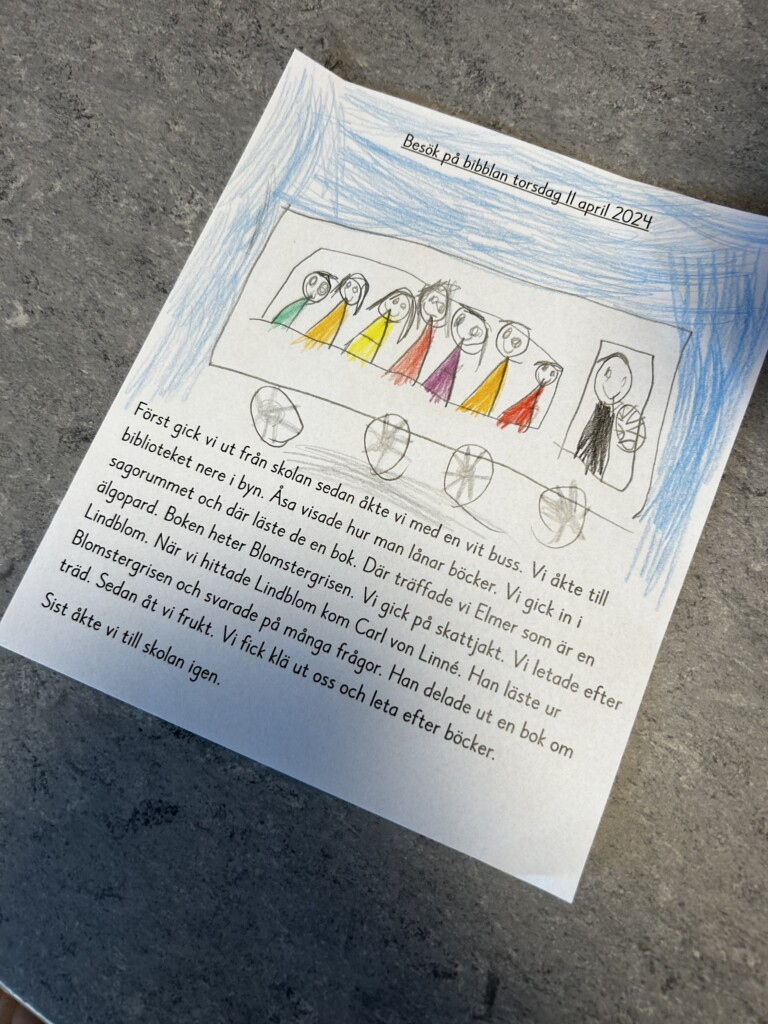 Besök på bibblan torsdag 11 april 2024
Först gick vi ut från skolan sedan åkte vi med en vit buss. Vi åkte till
biblioteket nere i byn. Åsa visade hur man lånar böcker. Vi gick in i
sagorummet och där läste de en bok. Där träffade vi Elmer som är en
älgopard. Boken heter Blomstergrisen. Vi gick på skattjakt. Vi letade efter
Lindblom. När vi hittade Lindblom kom Carl von Linné. Han läste ur
Blomstergrisen och svarade på många frågor. Han delade ut en bok om
träd. Sedan åt vi frukt. Vi fick klä ut oss och leta efter böcker.
Sist åkte vi till skolan igen.